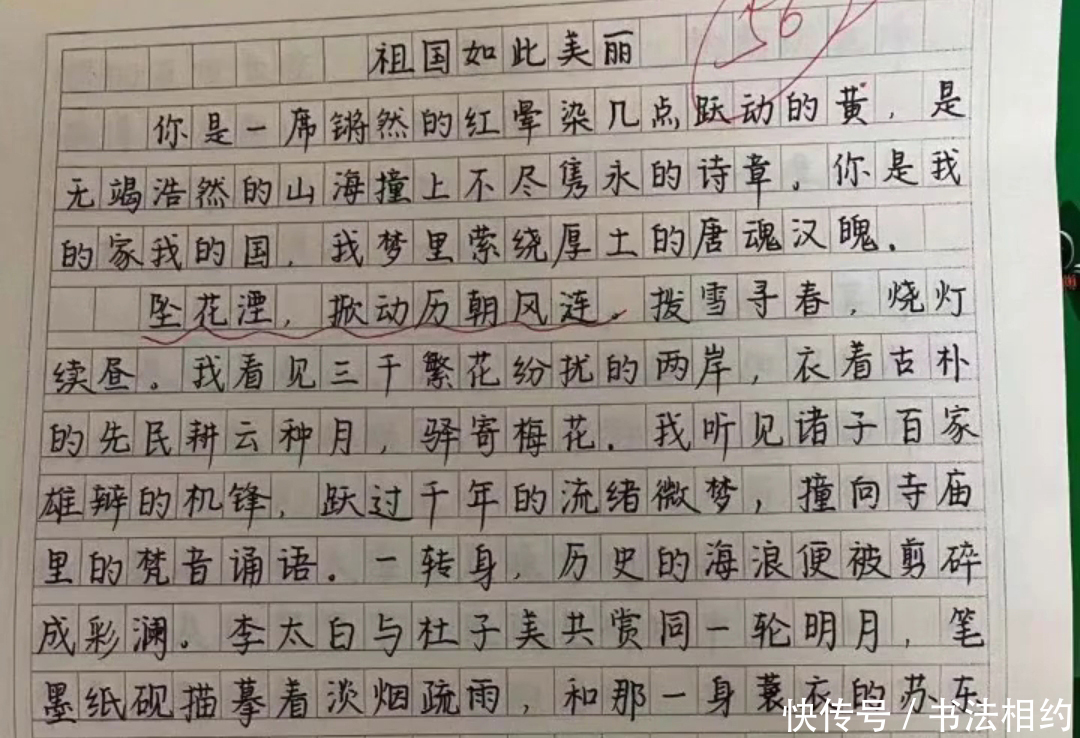 56
祖国如此美丽
你是一席锵然的红晕染几点跃动的黄，是
无竭浩然的山海撞上不尽隽永的诗章。你是我
的家我的国，我梦里萦绕厚土的唐魂汉魄。
坠花湮，掀动历朝风涟。拨雪寻春，烧灯
续昼。我看见三千繁花纷扰的两岸，衣着古朴
的先民耕云种月，驿寄梅花。我听见诸子百家
雄辩的机锋，跃过千年的流绪微梦，撞向寺庙
里的梵音诵语。一转身，历史的海浪便被剪碎
成彩澜。李太白与杜子美共赏同一轮明月，笔
墨纸砚描摹着淡烟疏雨，和那一身蓑衣的苏东
快传号 / 书法相约